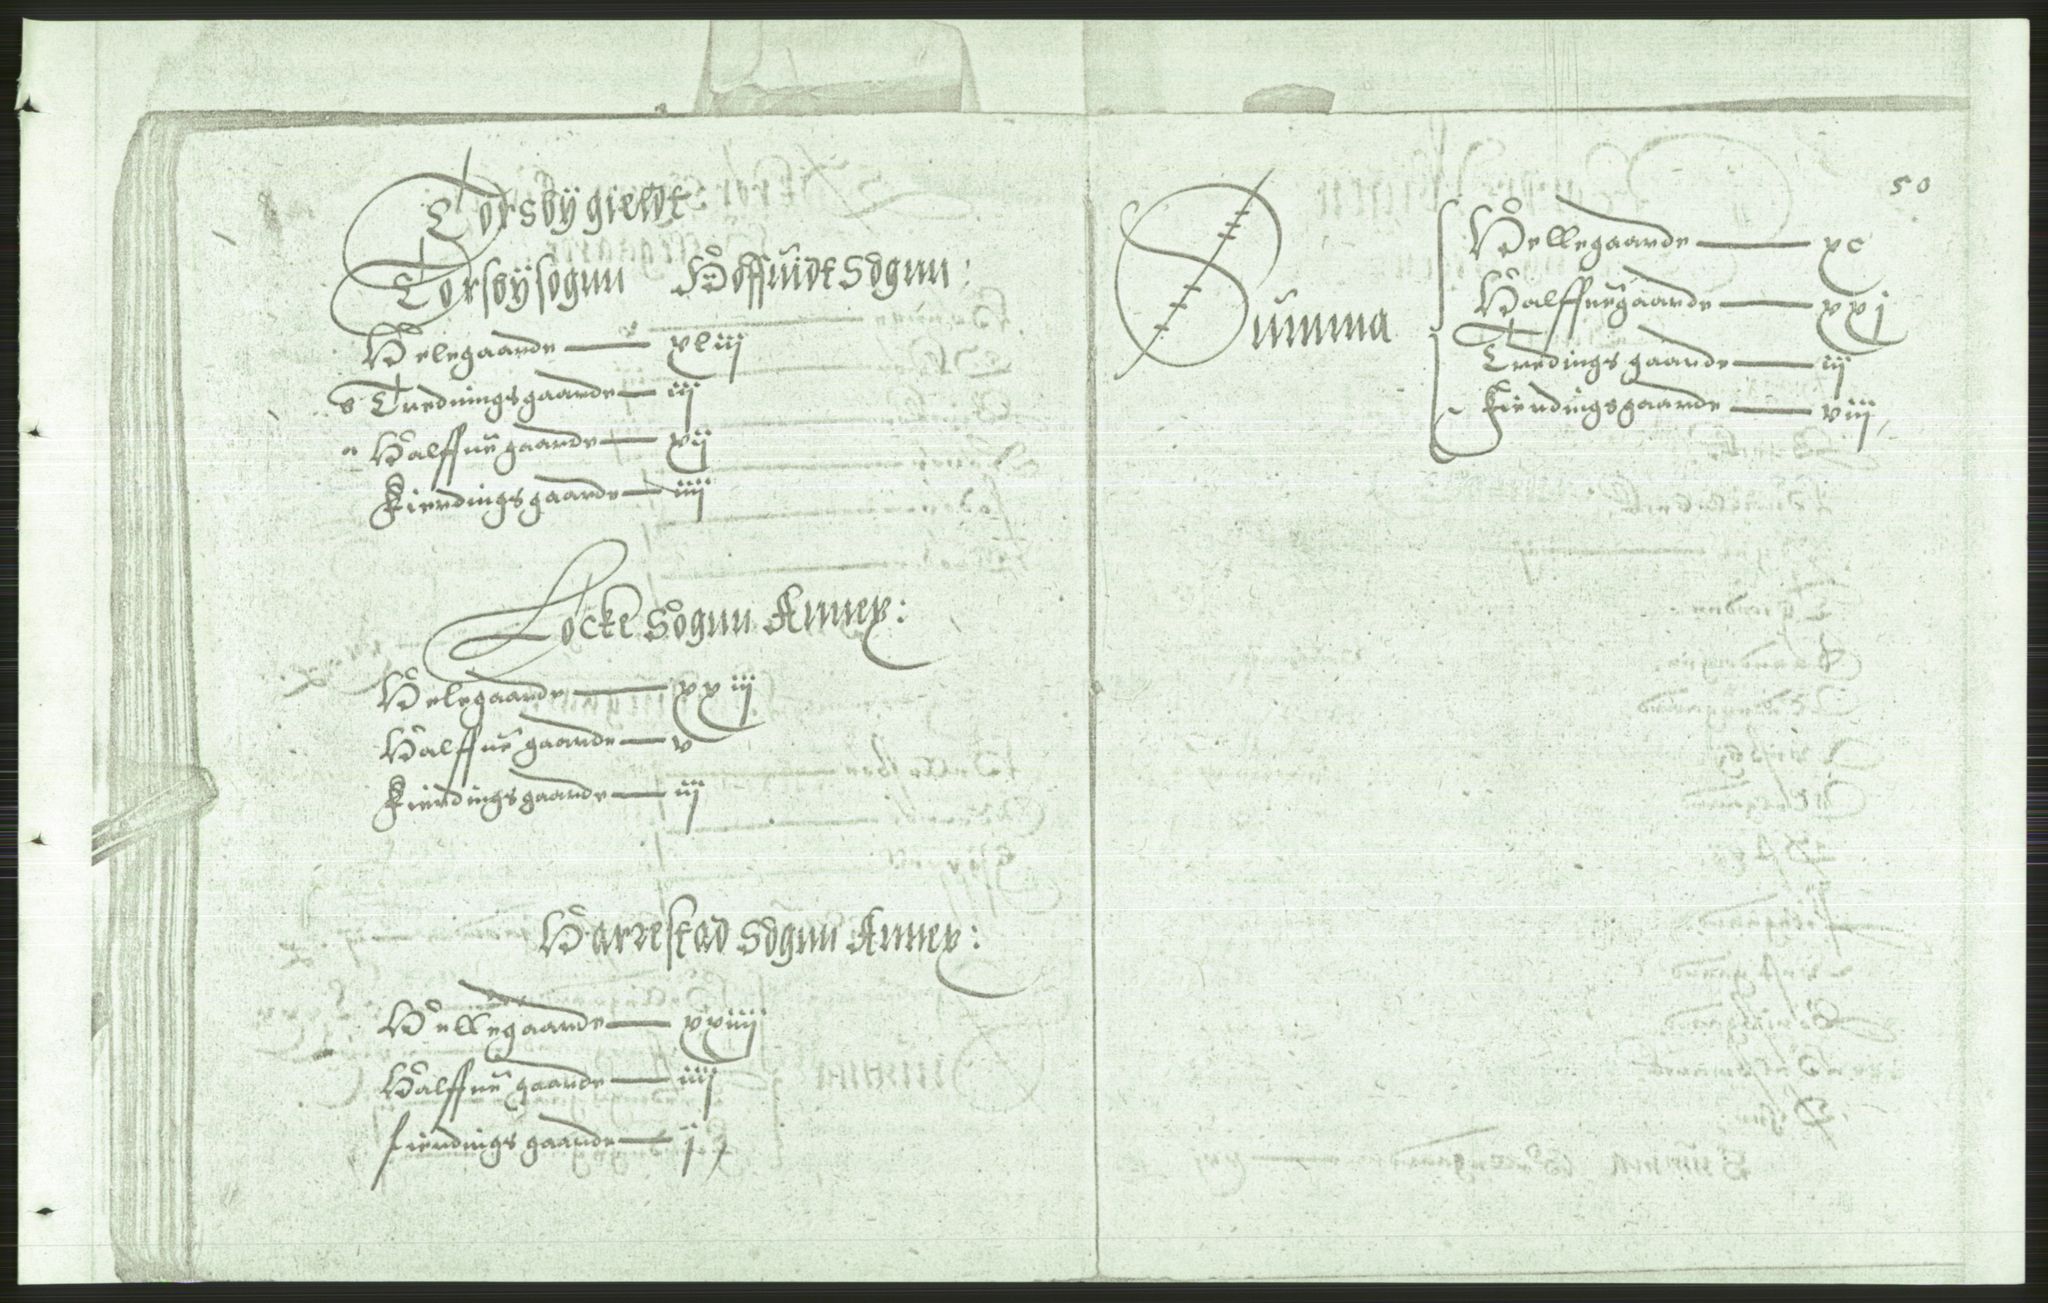 Torsbÿ gieldt
Torsbÿ sognn Hoffuidt Sognn:
Helegaarde — xliij
Tredningsgaarde — iij
Halffuegaarde — xij
Fierdingsgaarde — iiij
Locke Sognn Annex:
Helegaarde — xxiij
Halffuegaarde — v
Fierdingsgaarde — iij
Harrestad Sognn Annex:
Hellegaarde — xxiiij
Halffuegaarde — iiij
fierdingsgaarde — j
50
Summa
Hellegaarde — xc
Halffuegaarde — xxj
Tredingsgaarde — iij
Fierdingsgaarde — viij